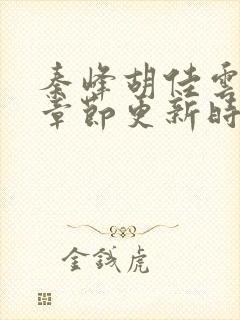 秦峰胡佳雲
章節更新時
金錢虎